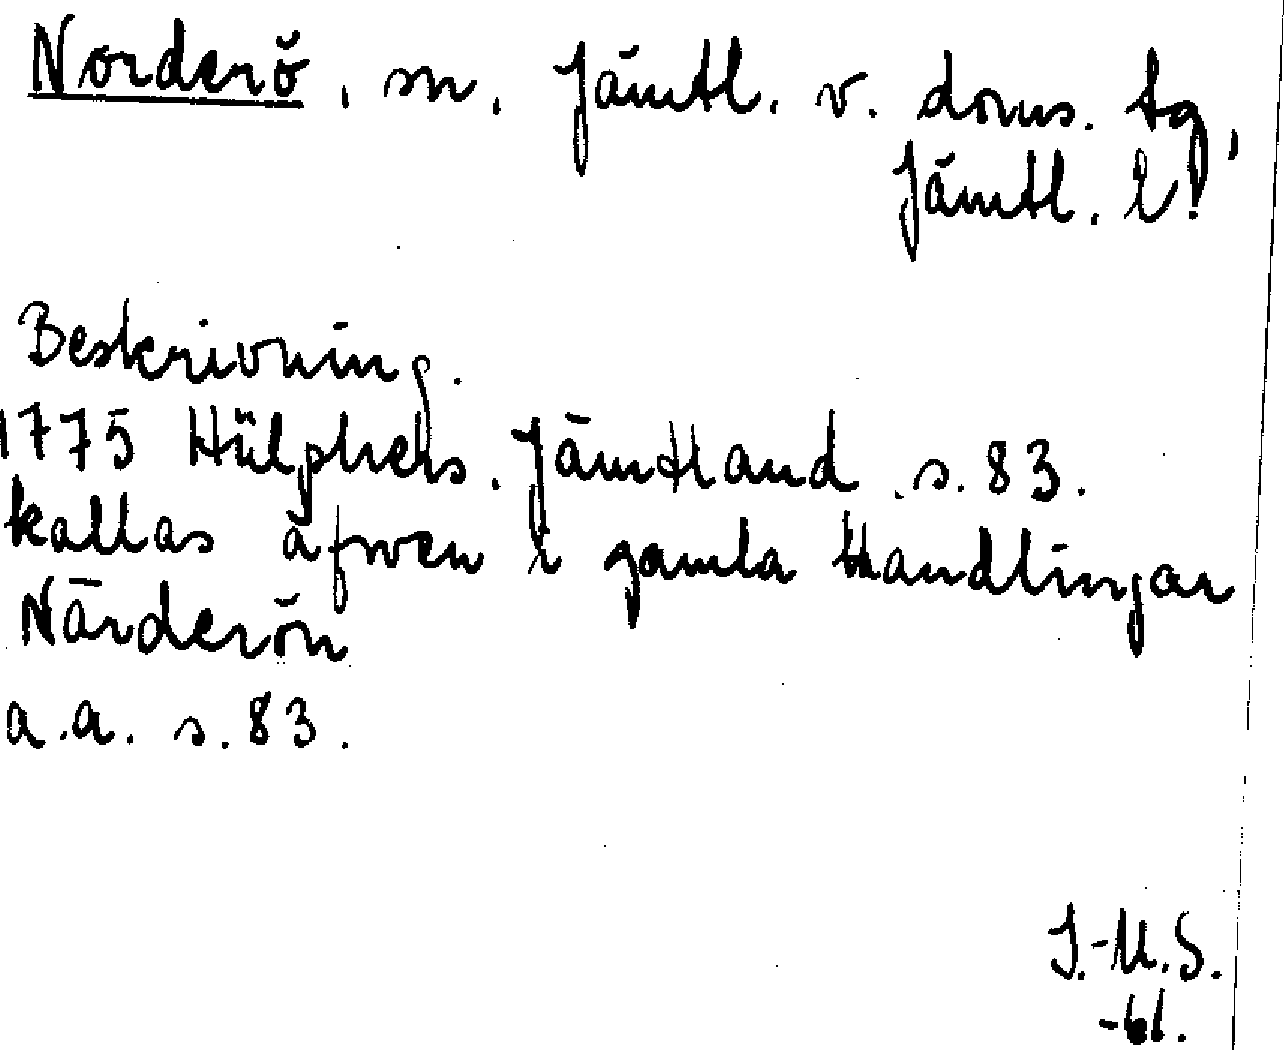 Norderö, sn. Jämtl. v. doms. tg,
Jämtl. l.
Beskrivning.
1775 Hülphers. Jämtland. s. 83.
kallas äfwen i gamla Handlingar
Närderön
a.a. s. 83.
I.-M.S.
-61.